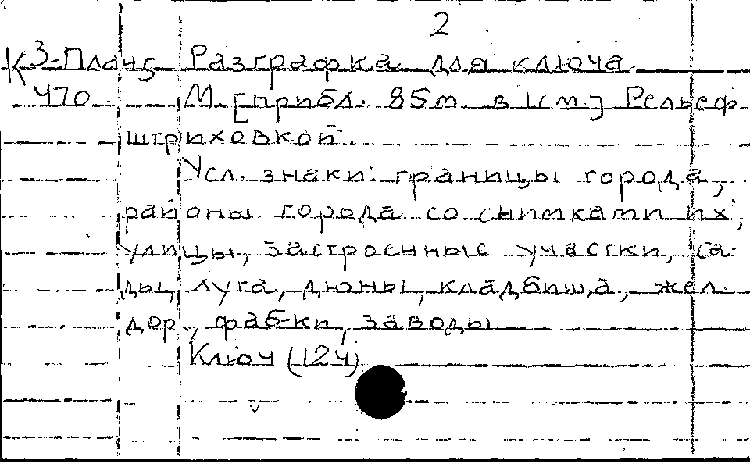 2
К 3-План5 Разграфка для ключа
470 М. [прибл. 85м. в 1см.] Рельеф
штриховкой.
Усл. знаки: границы города,
районы города со снимками их,
улицы, застроенные участки, са-
ды, луга, дюны, кладбища, жел.
дор., фаб-ки, заводы
Ключ (124)